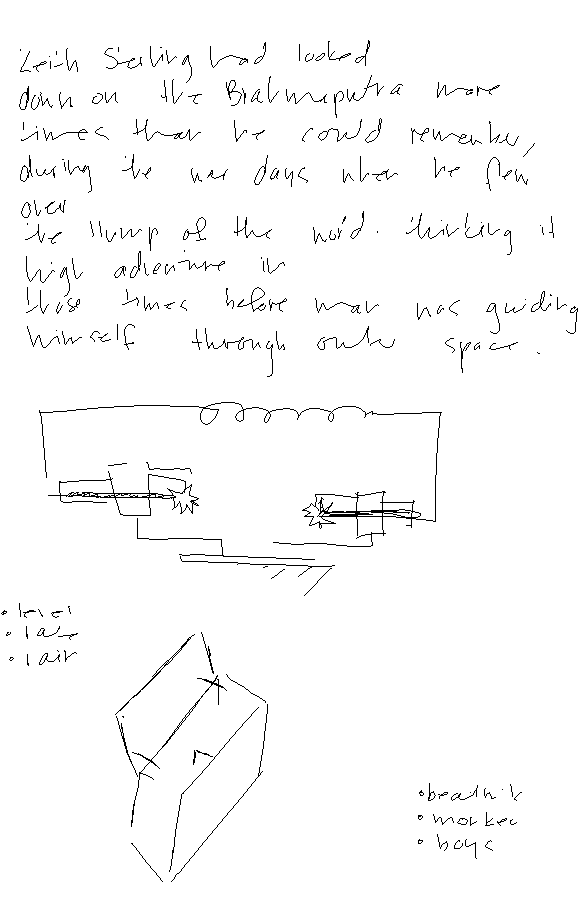 Keith Sterling had looked
down on the Brahmaputra more
times than he could remember,
during the war days when he flew
over
the Hump of the world. thinking it
high adventure in
those times before man was guiding
himself through outer space.
• level
• lake
• lair
• beatnik
•
• boys